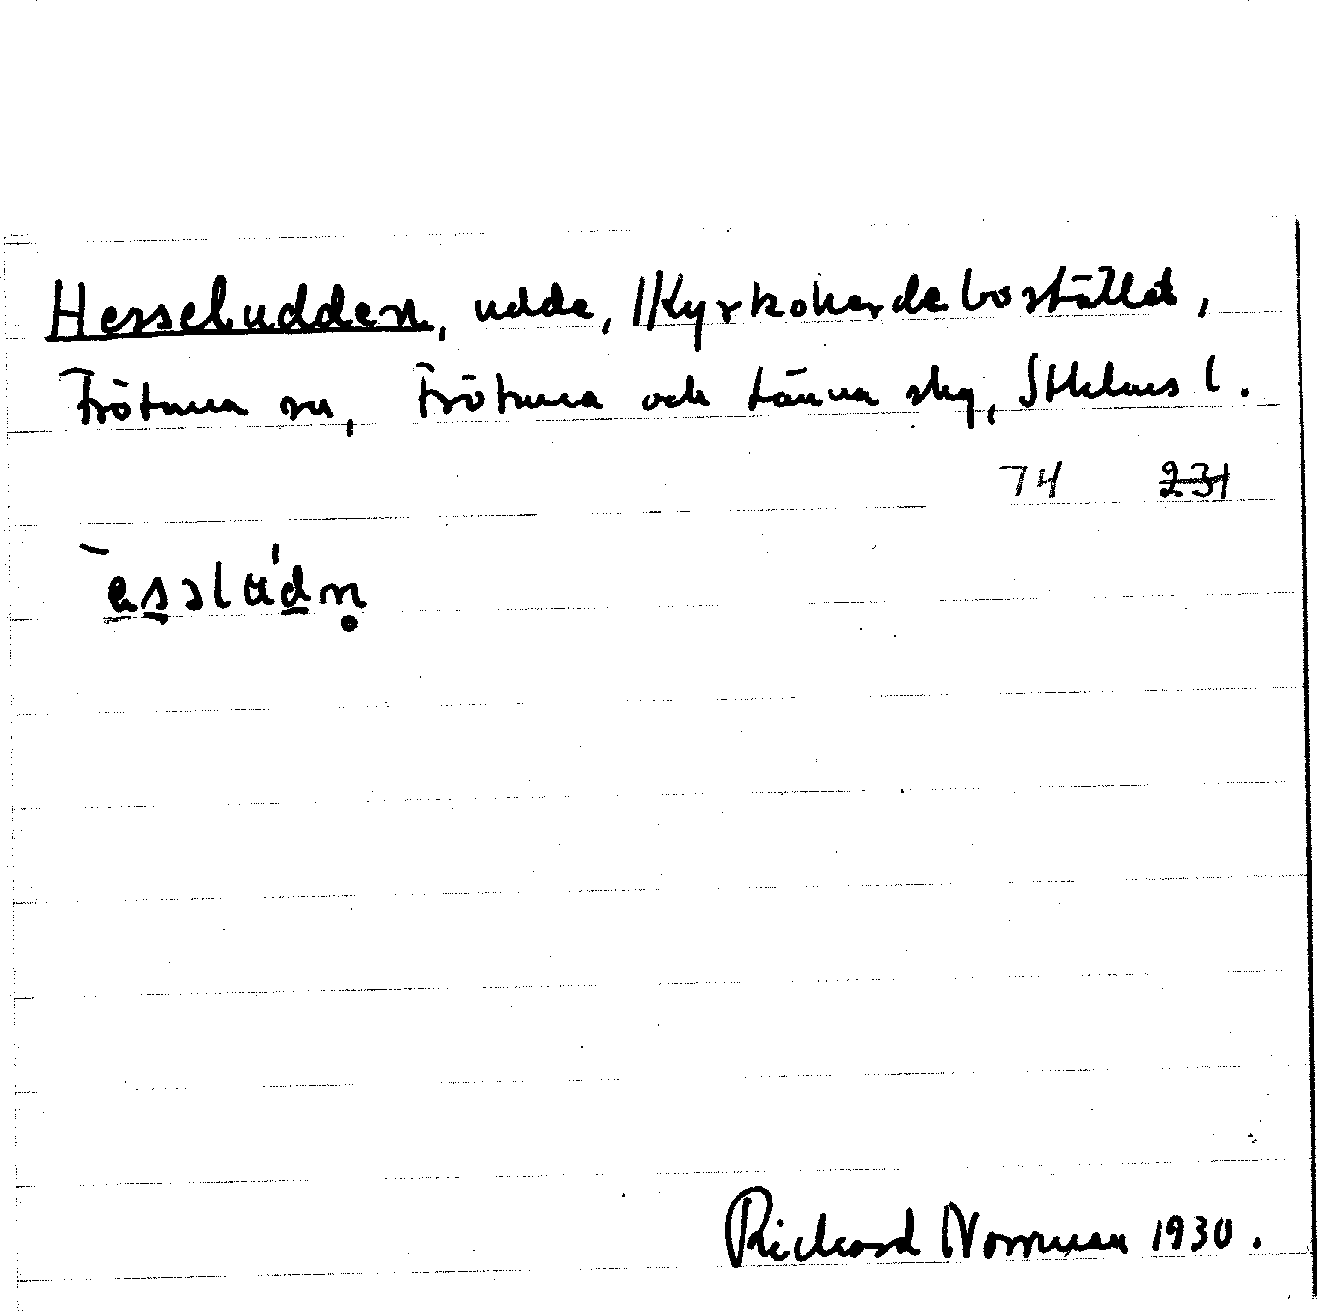 Hesseludden, udde, //Kyrkoherdebostället,
Frötuna sn, Frötuna och Länna skg, Sthlms l.
74 231
Richard Norrman 1930.